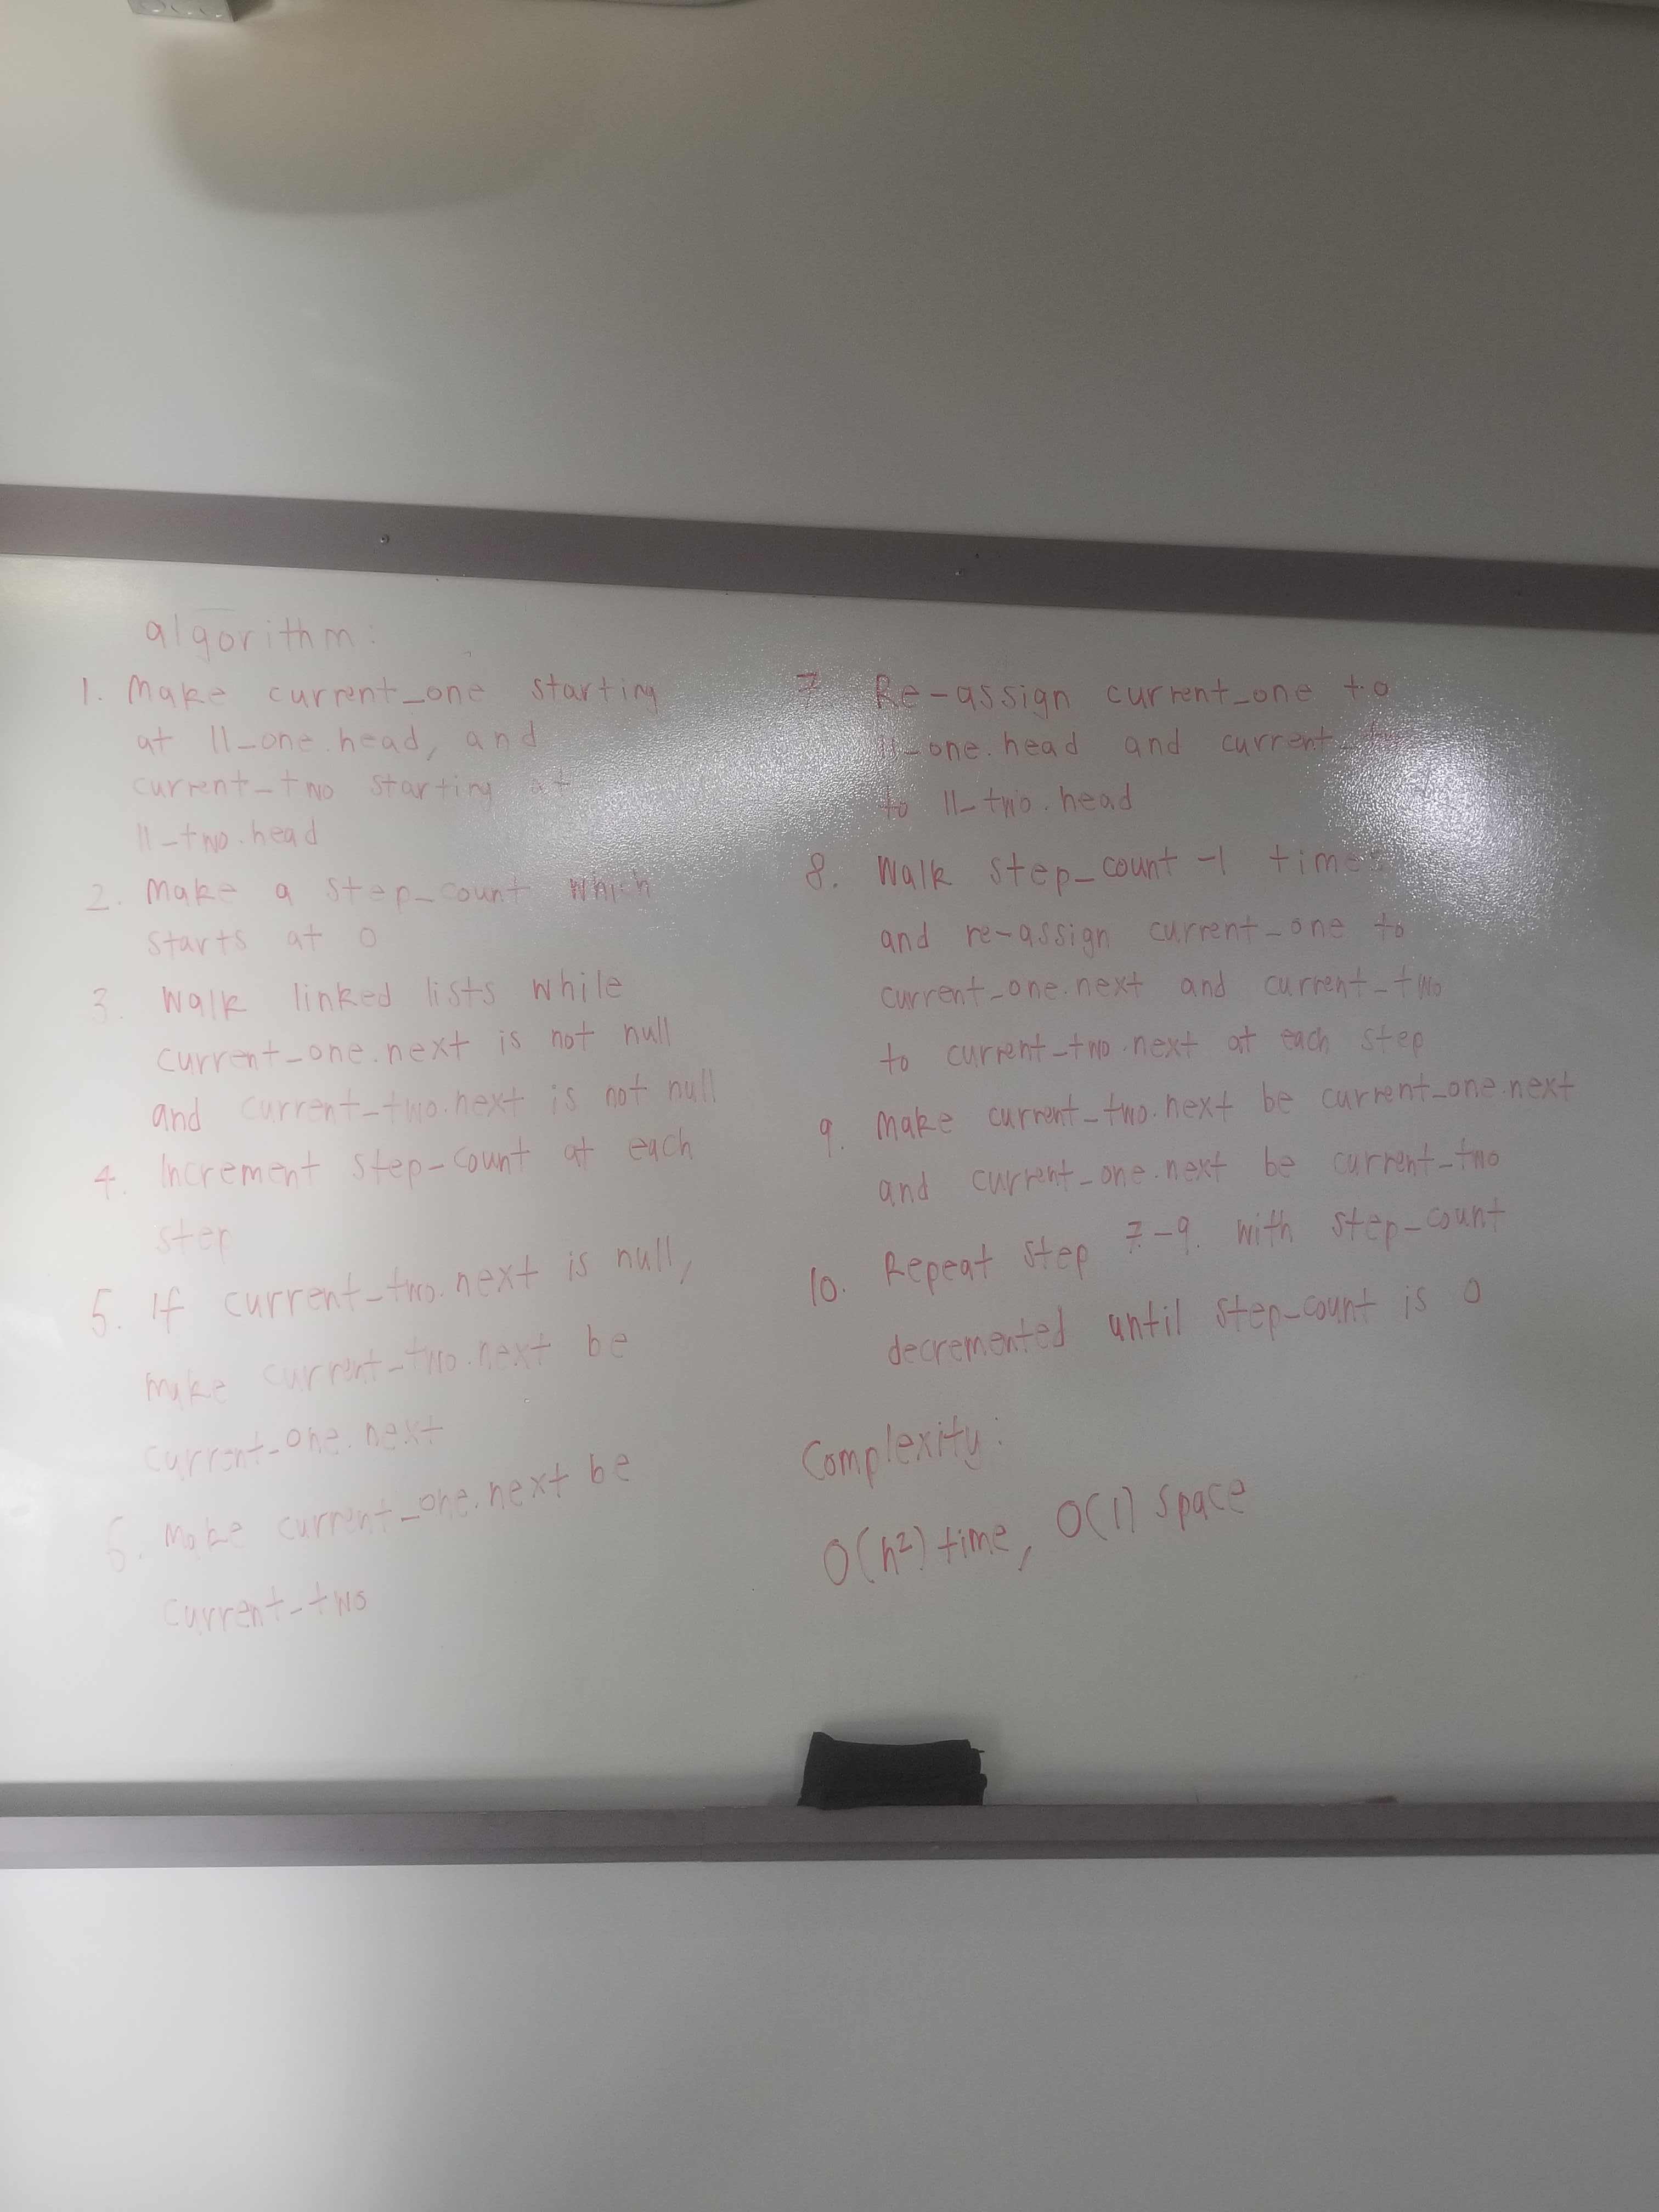 algorithm:
1. Make current_one starting
at ll_one.head, and
current_two starting at
ll_two.head
2. Make a step_count which
starts at 0
3. Walk linked lists while
current_one.next is not null
and current_two.next is not null
4. Increment step_count at each
step
5. If current_two.next is null,
make current_two.next be
current_one.next
6. Make current_one.next be
current_two
7 Re-assign current_one to
ll_one.head and current_two
to ll_two.head
8. Walk step_count -1 times
and re-assign current_one to
current_one.next and current_two
to current_two.next at each step
9. Make current_two.next be current_one.next
and current_one.next be current_two
10. Repeat step 7-9. with step_count
decremented until step_count is 0
Complexity:
O(n²) time, O(1) space